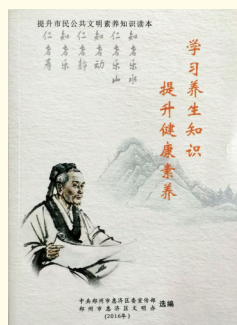 提升市民公共文明素养知识读本
知者乐水
仁者乐山
知者动
仁者静
知者乐
仁者寿
学习养生知识
提升健康素养
中共郑州市惠济区委宣传部
郑州市惠济区文明办
选编
(2016年)